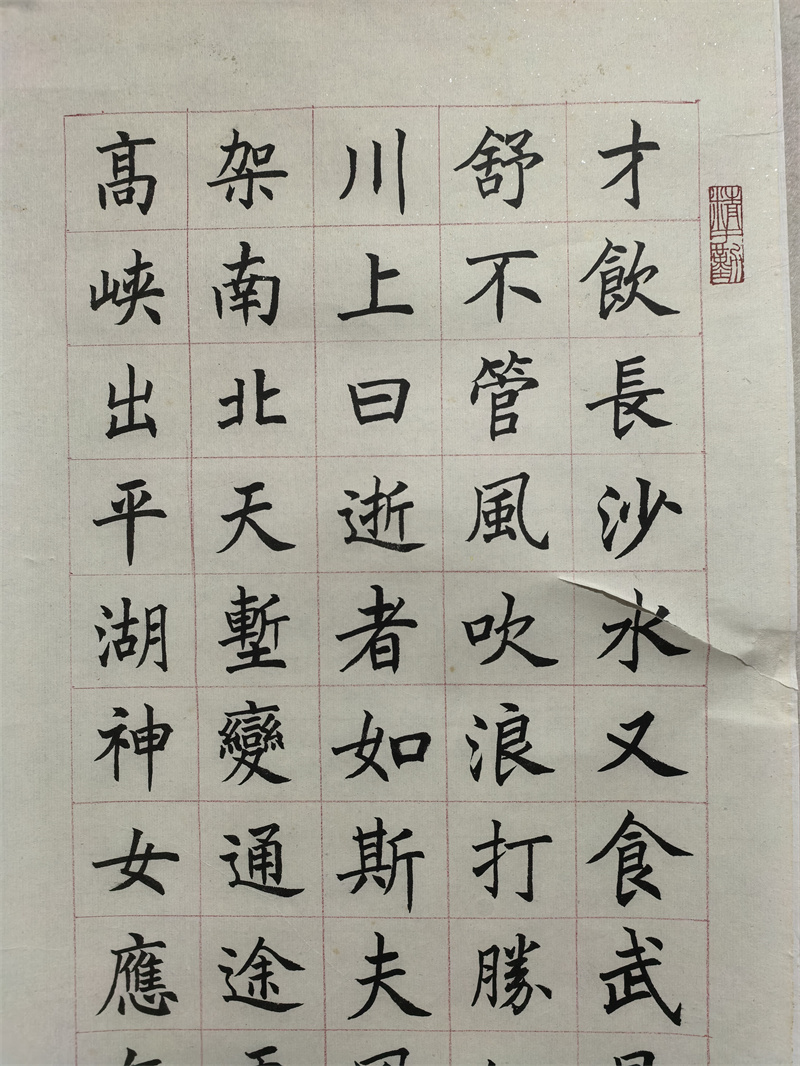 才飲長沙水又食武
舒不管風吹浪打勝
川上曰逝者如斯夫
架南北天塹變通途
髙峽出平湖神女應